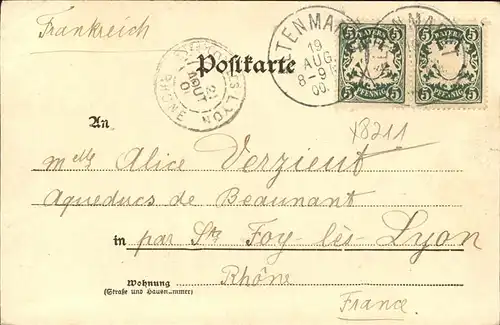 Frankreich
Postkarte
19
AUG.
8-9
00.
BAYERN
5 5
PFENNIG
BAYERN
5 5
PFENNIG
LYON
RHÔNE
AOUT
x8211
An
Mlle Alice Verzieut
Aqueducs de Beaunant
in par Ste Foy-lès-Lyon
Rhône
Wohnung
(Straße und Hausnummer)
France